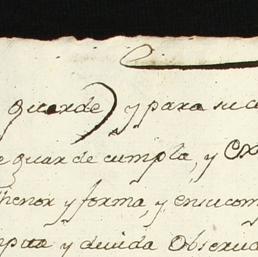 guarde) y para su c
e guarde cumpla, y ex
thenor y forma, y en su com
mpta y devida Observa